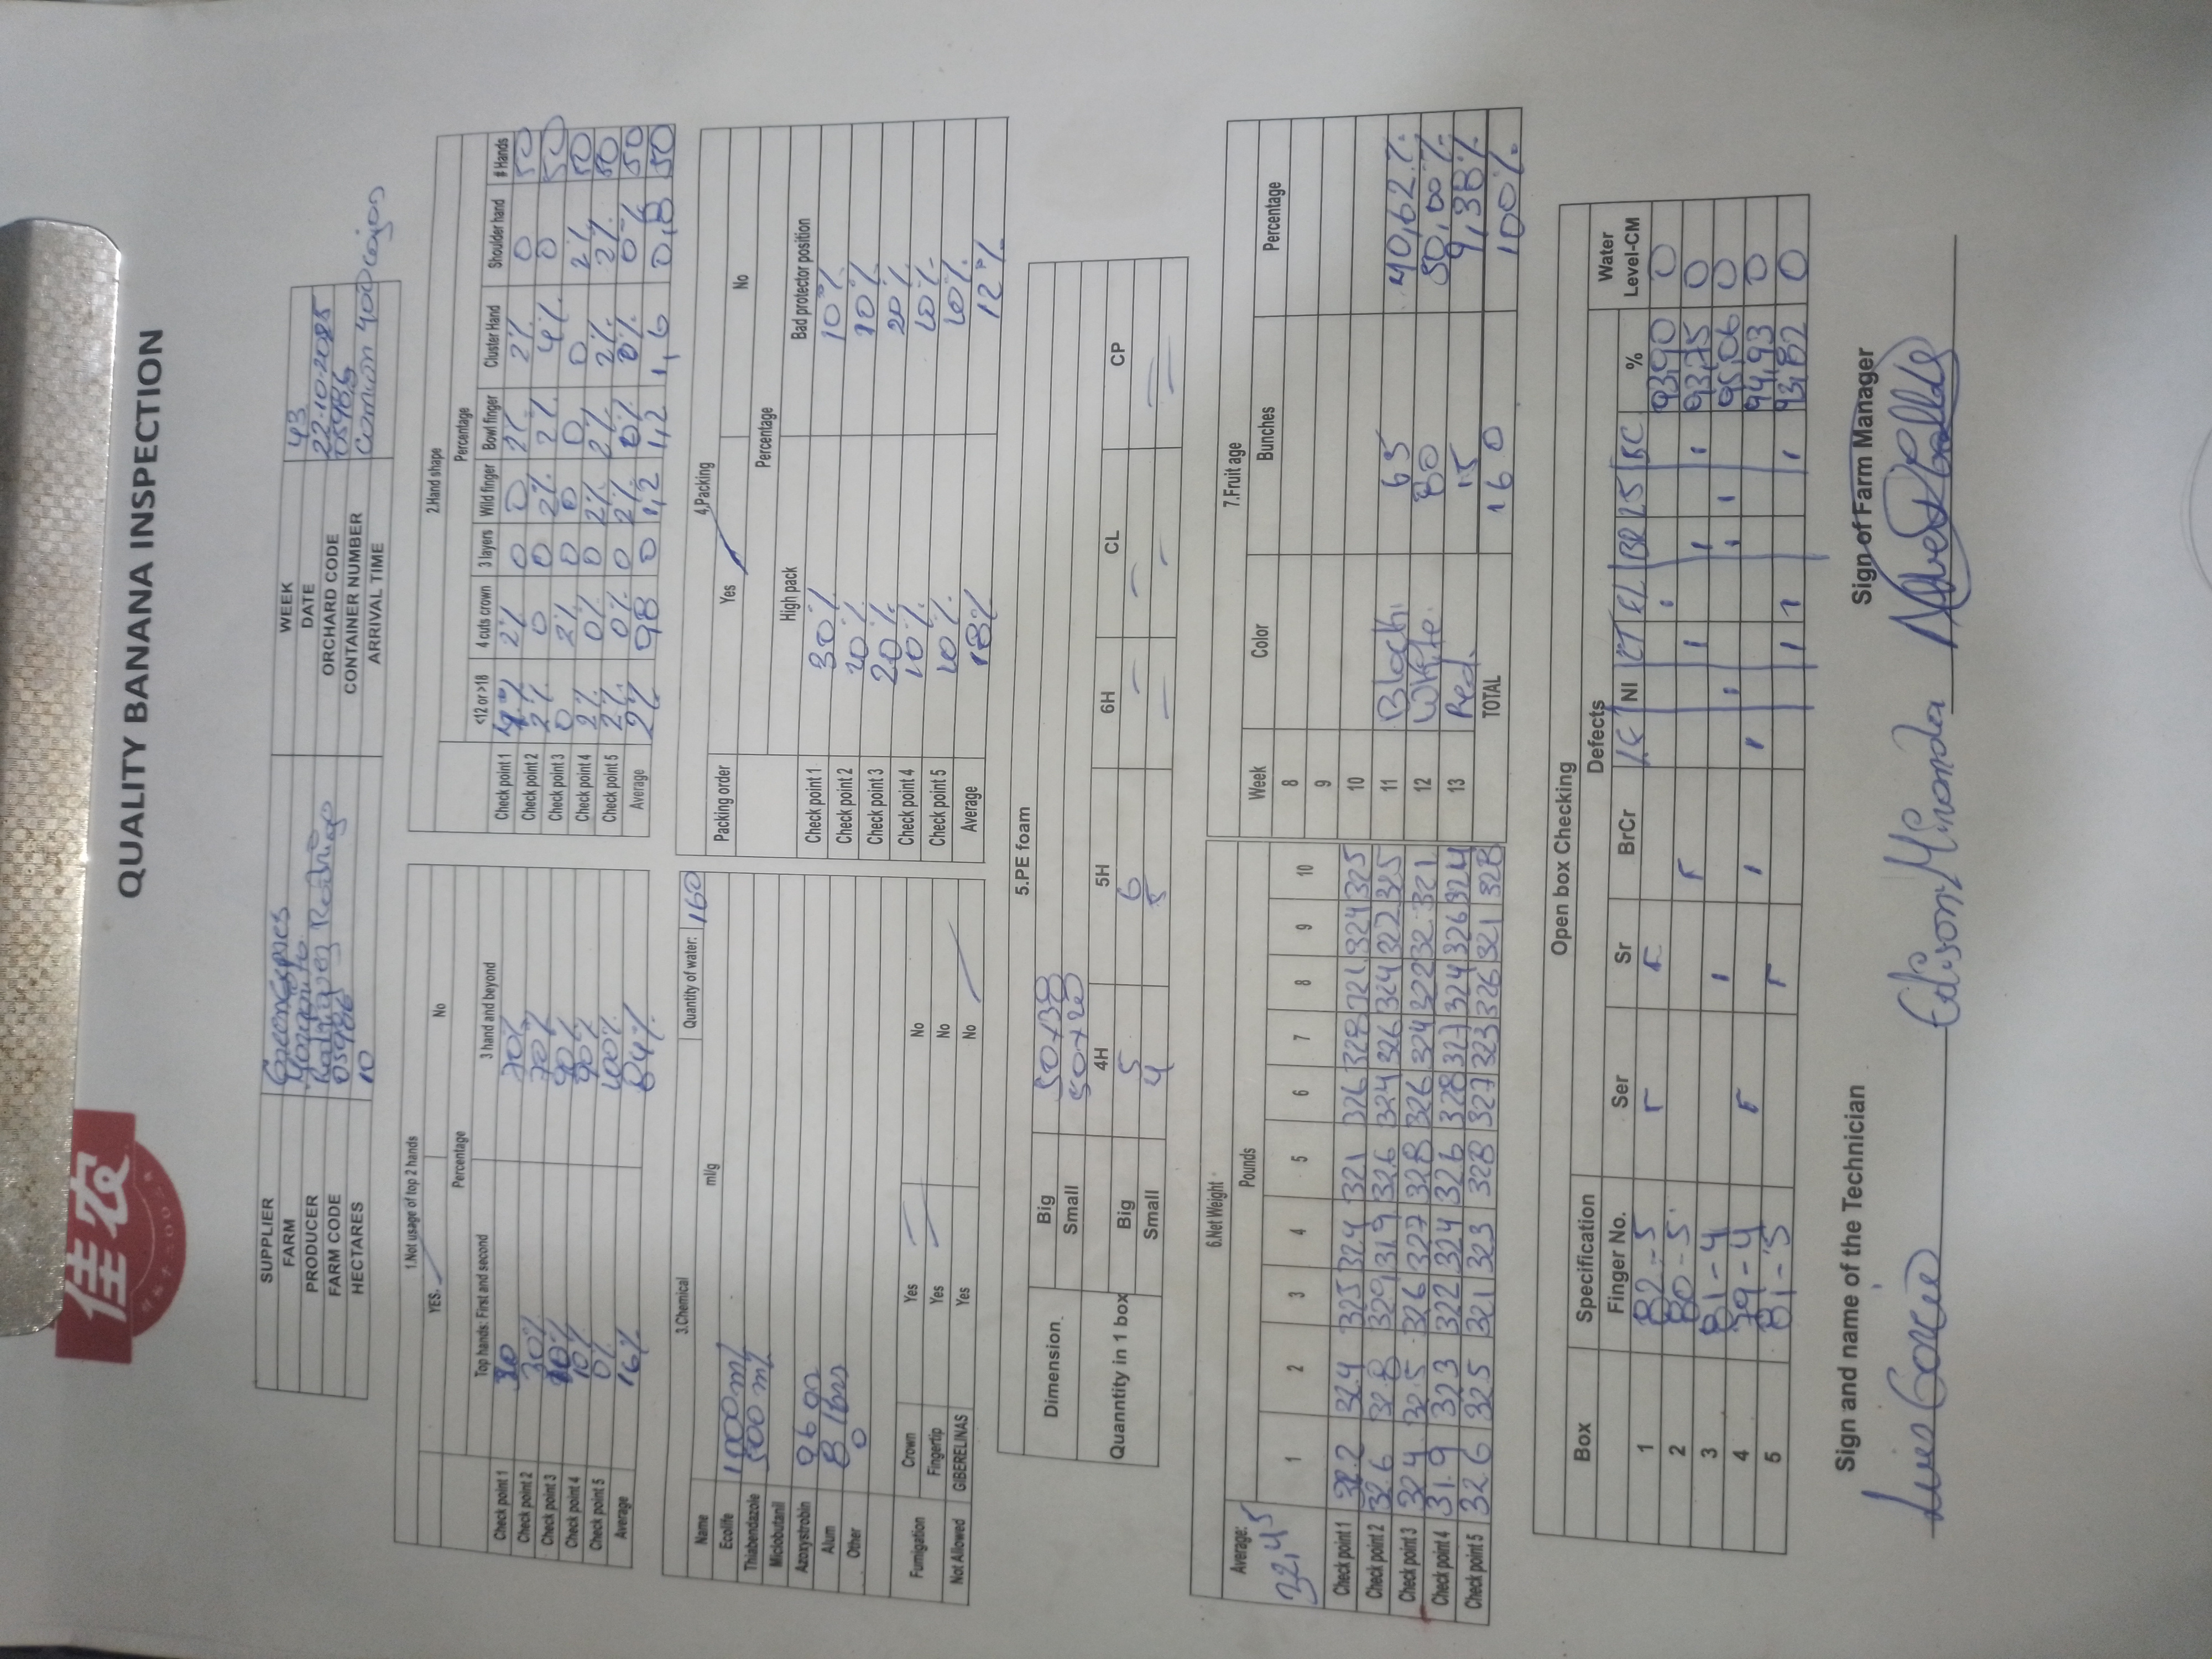 佳农
QUALITY BANANA INSPECTION
SUPPLIER Greenexpres
FARM Margarita
PRODUCER Rodriguez Rodrigo
FARM CODE 05986
HECTARES 10
WEEK 43
DATE 22-10-2025
ORCHARD CODE 05986
CONTAINER NUMBER Comion 400 cajas
ARRIVAL TIME
1.Not usage of top 2 hands
YES. No
Percentage
Top hands: First and second 3 hand and beyond
Check point 1 30 70%
Check point 2 30% 70%
Check point 3 10% 90%
Check point 4 10% 90%
Check point 5 0% 100%
Average 16% 84%
2.Hand shape
Percentage
<12 or >18 4 cuts crown 3 layers Wild finger Bowl finger Cluster Hand Shoulder hand # Hands
Check point 1 4% 2% 0 0 2% 2% 0 50
Check point 2 2% 0 0 2% 2% 4% 0 50
Check point 3 0 2% 0 0 0 0 2% 50
Check point 4 2% 0% 0 2% 2% 2% 2% 50
Check point 5 2% 0% 0 2% 0% 0% 0% 50
Average 2% 98 0 1,2 1,2 1,6 0,8 50
3.Chemical Quantity of water: 160
Name ml/g
Ecolife 1000 ml
Thiabendazole 500 ml
Miclobutanil
Azoxystrobin 96 gr
Alum 8 lbrs
Other 0
Fumigation Crown Yes No
Fingertip Yes No
Not Allowed GIBERELINAS Yes No
4.Packing
Packing order Yes No
Percentage
High pack Bad protector position
Check point 1 30% 10%
Check point 2 20% 10%
Check point 3 20% 20%
Check point 4 10% 10%
Check point 5 10% 10%
Average 18% 12%
5.PE foam
Dimension Big 50+38
Small 50+20
Quanntity in 1 box 4H 5H 6H CL CP
Big 5 6 — — —
Small 4 5 — — —
6.Net Weight
Average: 32,45
Pounds
1 2 3 4 5 6 7 8 9 10
Check point 1 32.2 32.4 325 324 321 326 328 321 324 325
Check point 2 32.6 32.8 329 319 32.6 324 326 324 322 325
Check point 3 324 32.5 326 327 328 326 324 322 32. 321
Check point 4 31.9 323 322 324 326 328 327 324 326 324
Check point 5 32.6 325 321 323 328 327 323 326 321 328
7.Fruit age
Week Color Bunches Percentage
8
9
10
11 Black. 65 40,62%
12 White. 80 50,00%
13 Red. 15 9,38%
TOTAL 160 100%
Open box Checking
Box Specification Defects Water
Finger No. Ser Sr BrCr LF NI CT FL BR LS BC % Level-CM
1 82-5 93,90 0
2 80-5 93,75 0
3 81-4 95,06 0
4 79-4 94,93 0
5 81-5 93,82 0
Sign and name of the Technician
Sign of Farm Manager
Luis Garcia Edison Miranda